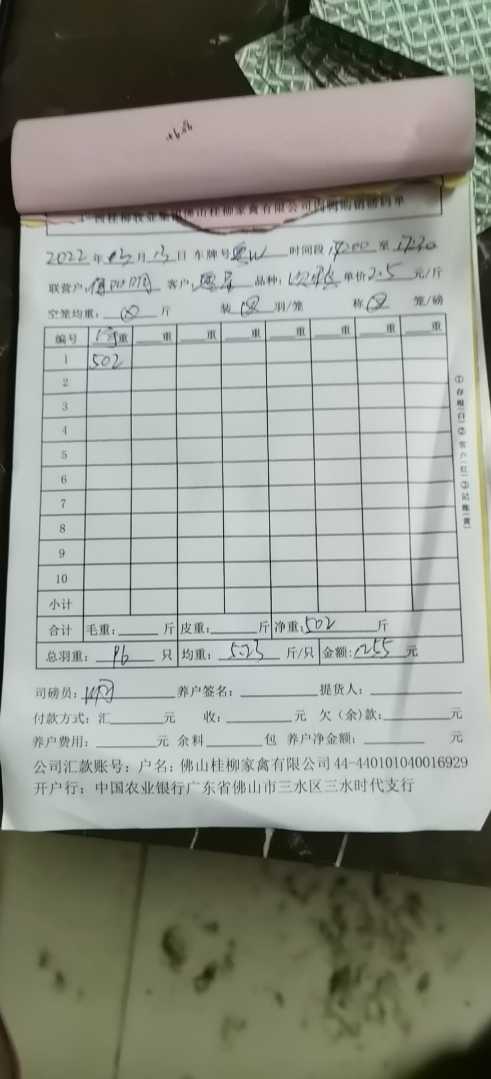 佛山桂柳家禽有限公司肉鸭购销磅码单
2022年 月 日 车牌号 时间段 至 17:30
联营户: 客户: 品种: 单价2.5元/斤
空笼均重: 斤 装 羽/笼 称 笼/磅
编号 重 重 重 重 重 重 重 重
1 502
2
3
4
5
6
7
8
9
10
小计
合计 毛重: 斤 皮重: 斤 净重:502 斤
总羽重: 96 只 均重: 5.23 斤/只 金额:1255元
司磅员: 养户签名: 提货人:
付款方式:汇 元 收: 元 欠(余)款: 元
养户费用: 元 余料 包 养户净金额: 元
公司汇款账号:户名:佛山桂柳家禽有限公司44-440101040016929
开户行:中国农业银行广东省佛山市三水区三水时代支行
①存根(白)②客户(红)③记账(黄)